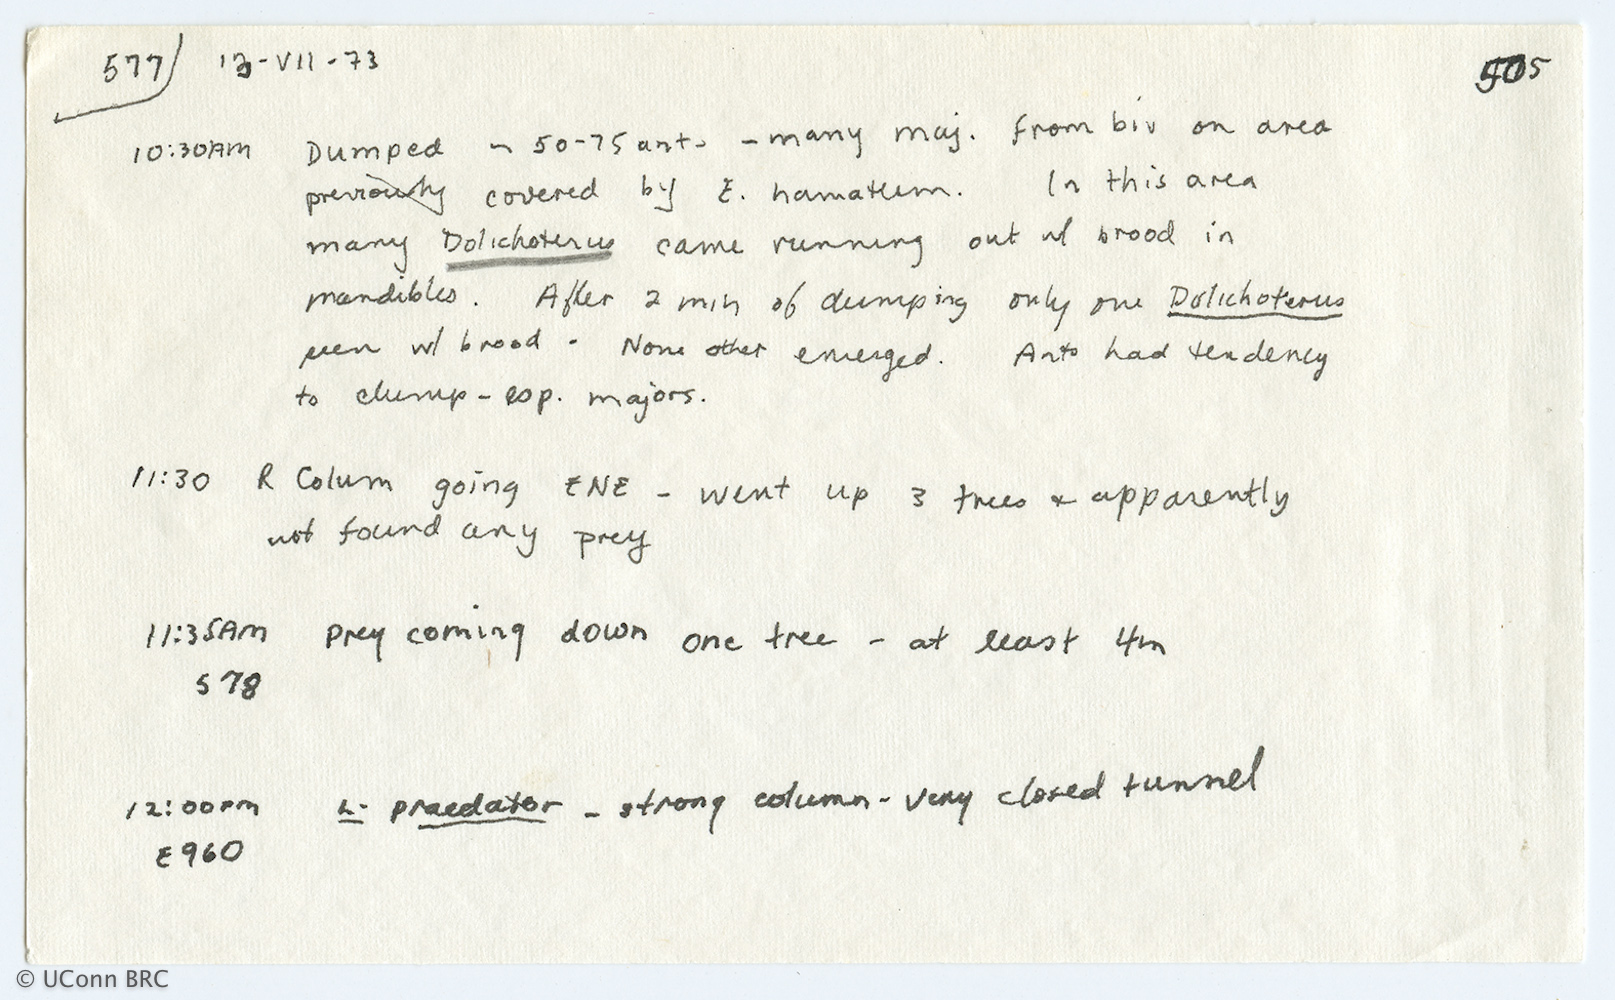 577 13-VII-73 505
10:30AM Dumped ~ 50-75 ants - many maj. from biv on area
previously covered by E. hamatum. In this area
many Dolichoterus came running out w/ brood in
mandibles. After 2 min of dumping only one Dolichoterus
seen w/ brood. None other emerged. Ants had tendency
to clump - esp. majors.
11:30 R Colum going ENE - went up 3 trees & apparently
not found any prey
11:35AM prey coming down one tree - at least 4m
578
12:00pm L. praedator - strong column - very closed tunnel
E960
© UConn BRC